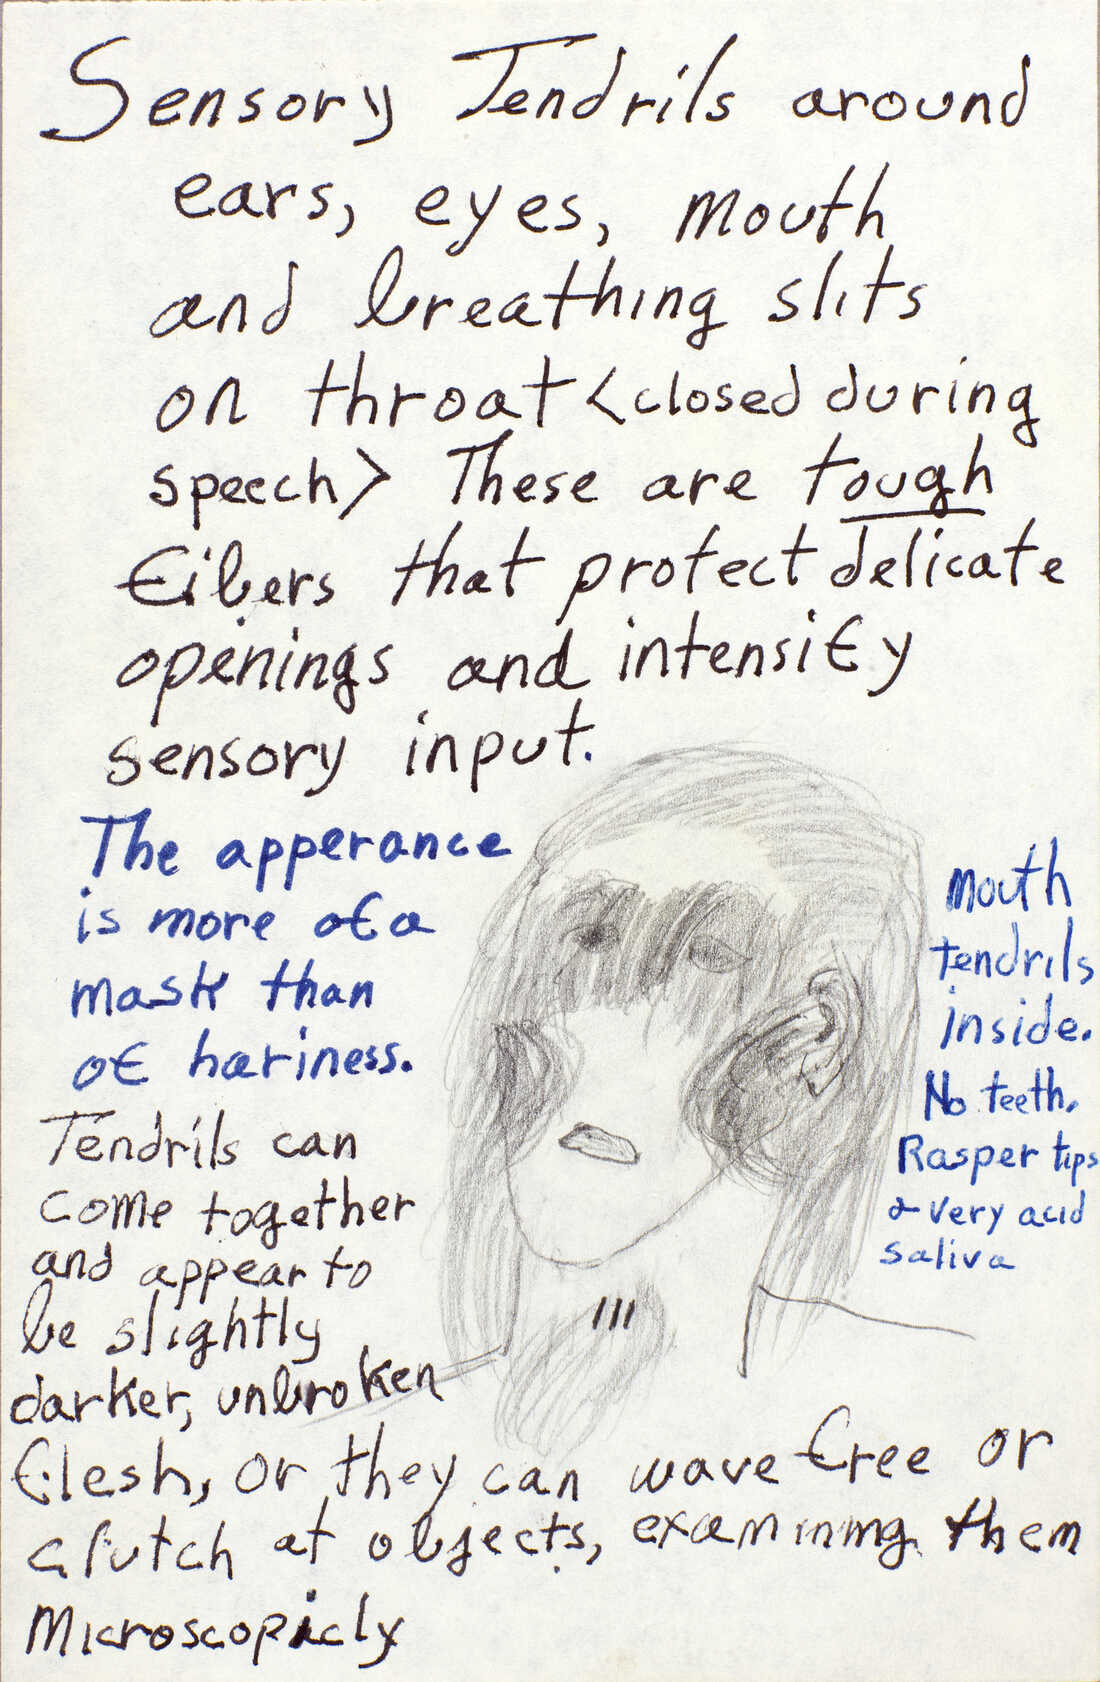 Sensory Tendrils around
ears, eyes, mouth
and breathing slits
on throat <closed during
speech> These are tough
fibers that protect delicate
openings and intensify
sensory input.
The apperance
is more of a
mask than
of hariness.
Tendrils can
come together
and appear to
be slightly
darker, unbroken
flesh, or they can wave free or
clutch at objects, examining them
Microscopicly
mouth
tendrils
inside.
No teeth.
Rasper tips
& very acid
saliva